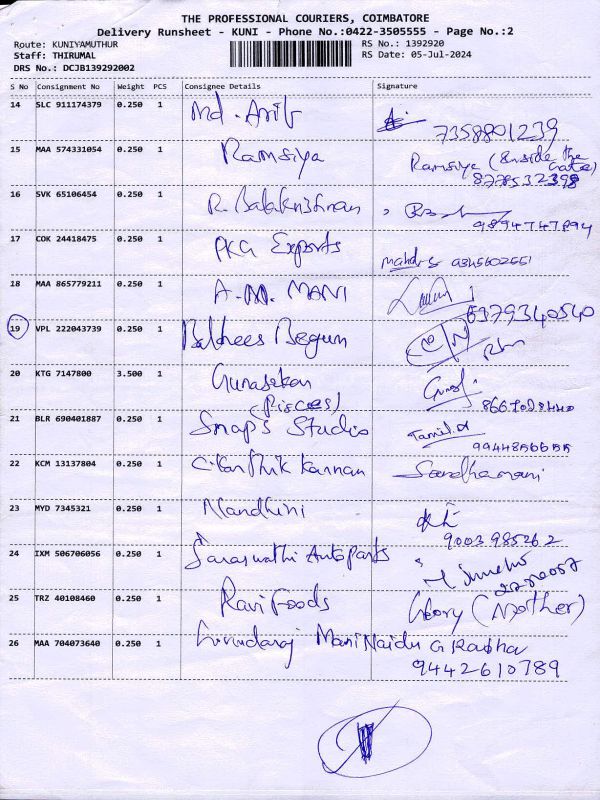 THE PROFESSIONAL COURIERS, COIMBATORE
Delivery Runsheet - KUNI - Phone No.:0422-3505555 - Page No.:2
Route: KUNIYAMUTHUR
RS No.: 1392920
Staff: THIRUMAL
RS Date: 05-Jul-2024
DRS No.: DCJB139292002
S No Consignment No Weight PCS Consignee Details Signature
14 SLC 911174379 0.250 1 Md. Arif
7358801239
15 MAA 574331054 0.250 1 Ramsiya Ramsiya (Inside the Gate)
8778532398
16 SVK 65106454 0.250 1 R. Balakrishnan
9894747894
17 COK 24418475 0.250 1 PKG Exports
18 MAA 865779211 0.250 1 A.M. MANI
6379340540
19 VPL 222043739 0.250 1 Begum
20 KTG 7147800 3.500 1 Gunasekan
21 BLR 690401887 0.250 1 Snap's Studio Tamil.
22 KCM 13137804 0.250 1 Karthik Kannan Sandhamani
23 MYD 7345321 0.250 1 Nandhini
9003985262
24 IXM 506706056 0.250 1 Saraswathi Autoparts
25 TRZ 40108460 0.250 1 Ravi Foods Glory (Mother)
26 MAA 704073640 0.250 1 Govindaraj Mani Naidu G Radha
9442610789